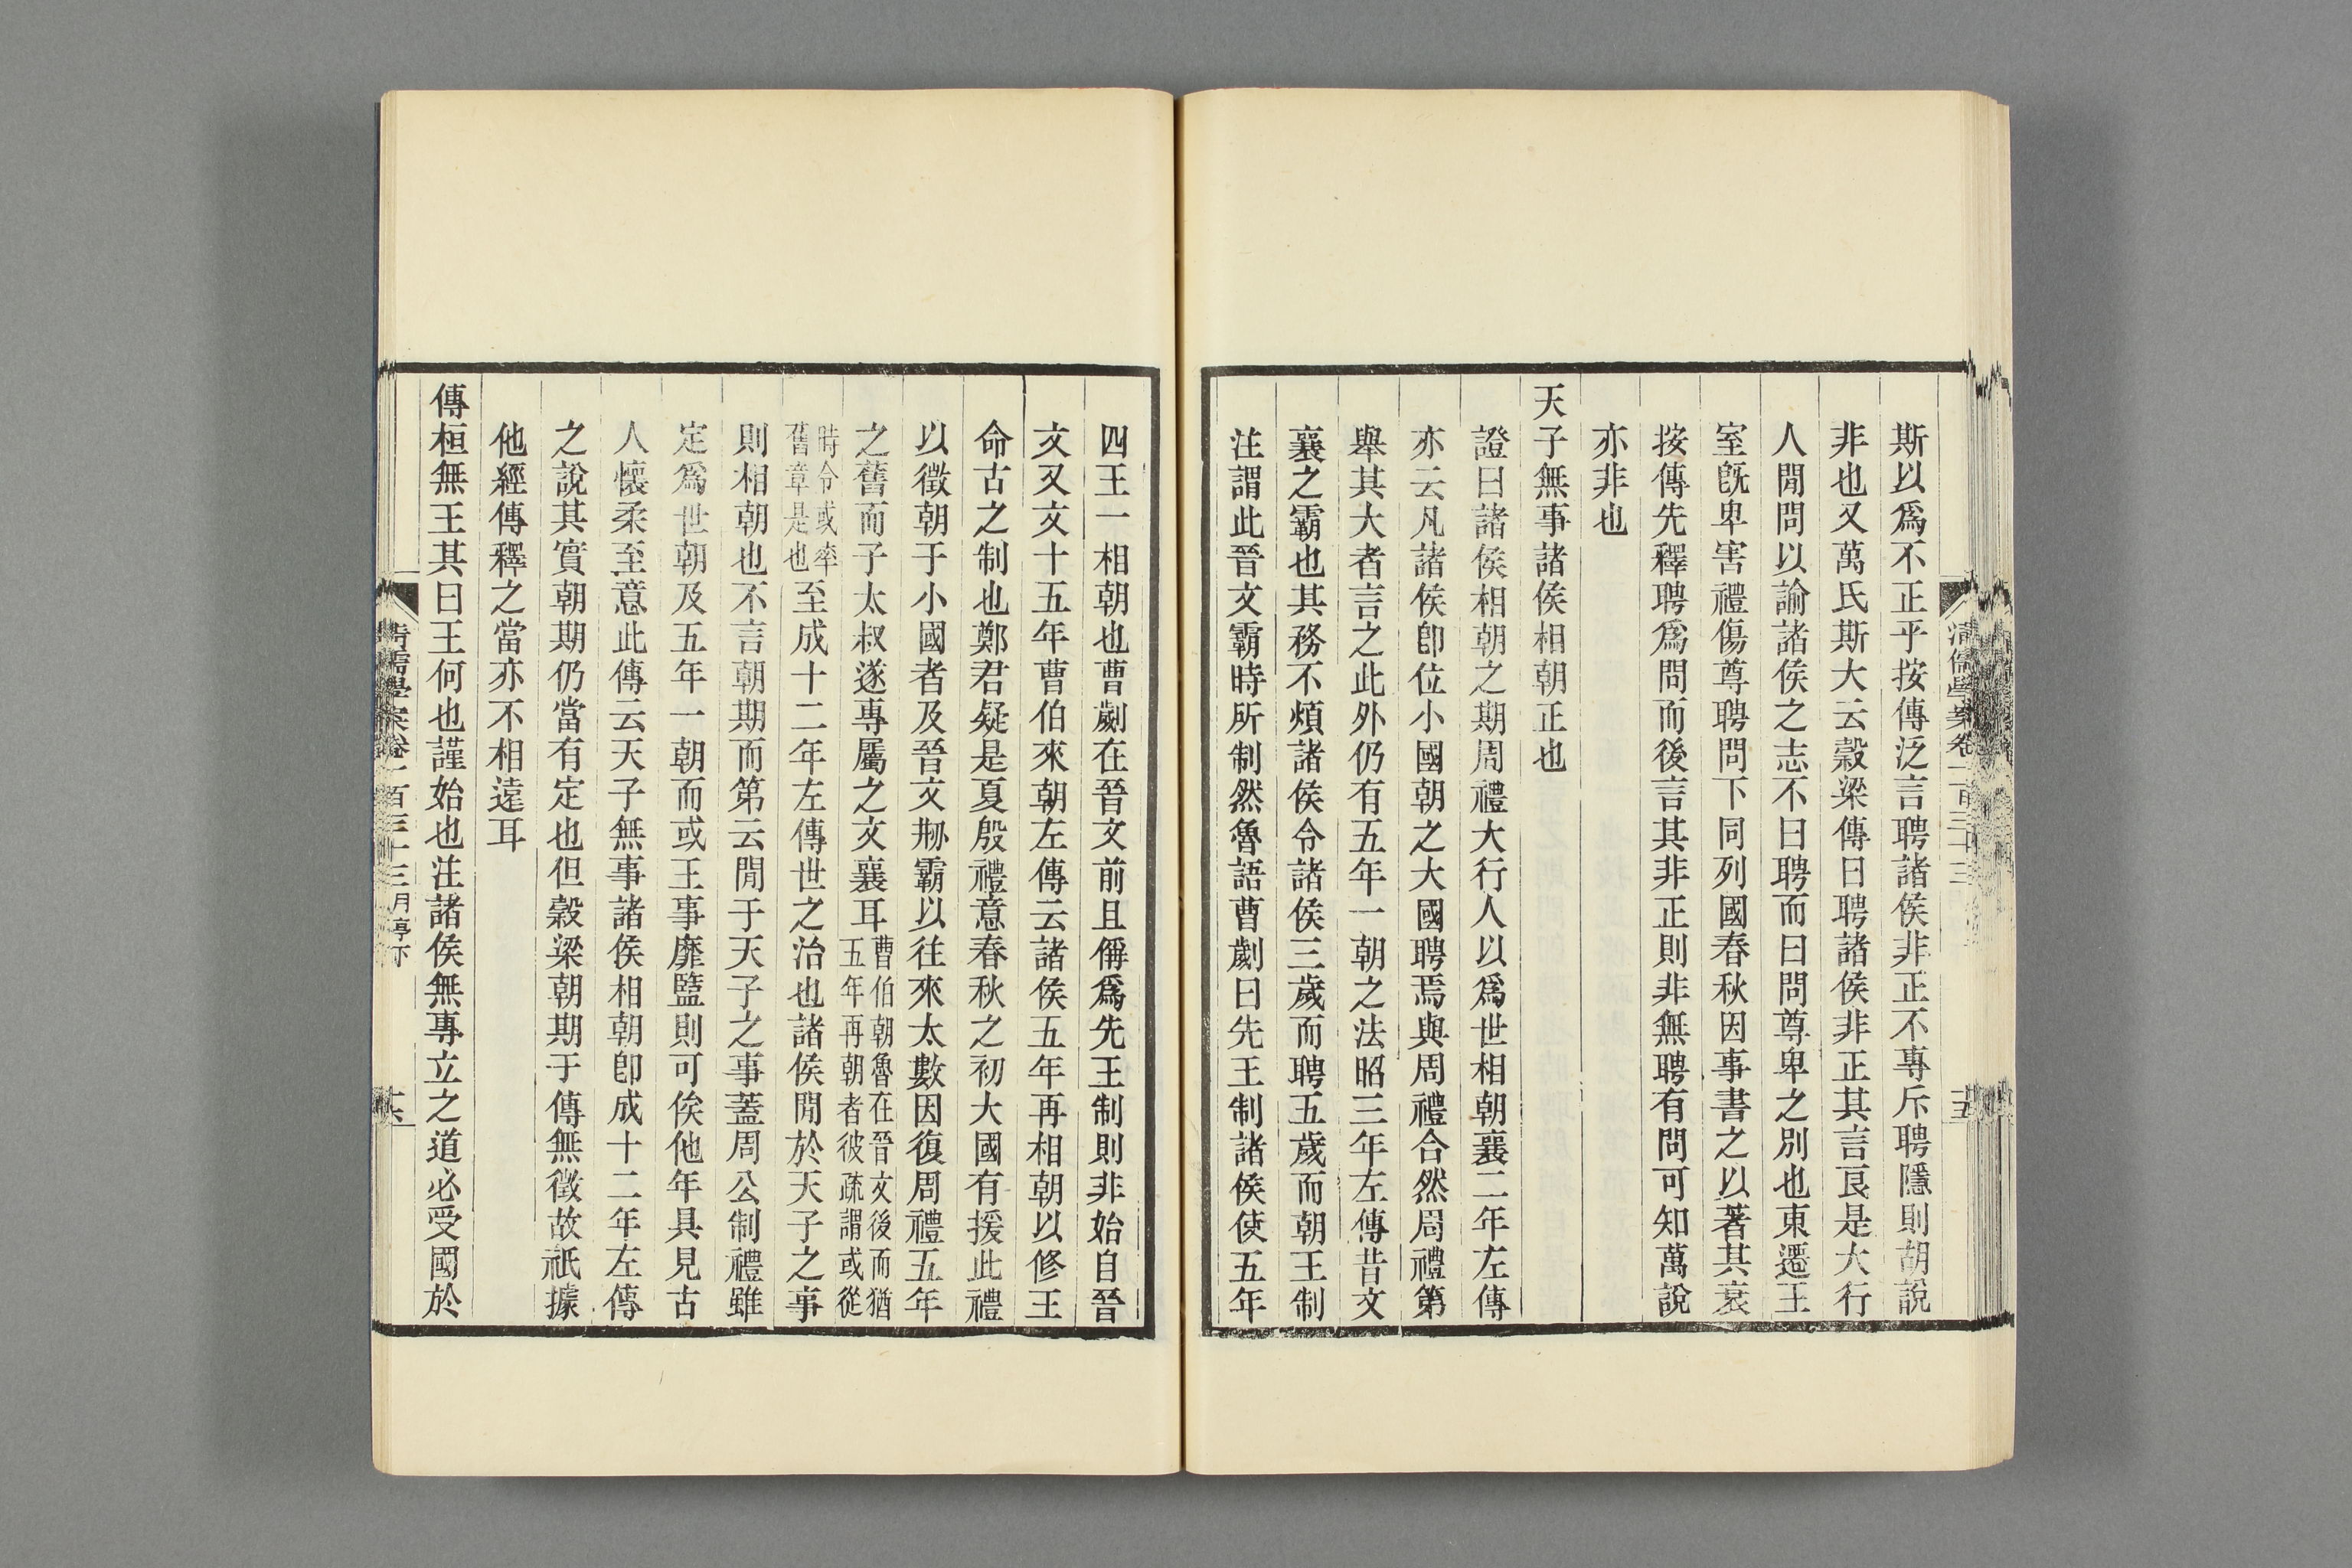 清儒學案卷一百三十三
十五
斯以爲不正乎按傳泛言聘諸侯非正不專斥聘隱則胡說
非也又萬氏斯大云穀梁傳曰聘諸侯非正其言良是大行
人閒問以諭諸侯之志不曰聘而曰問尊卑之別也東遷王
室旣卑害禮傷尊聘問下同列國春秋因事書之以著其衰
按傳先釋聘爲問而後言其非正則非無聘有問可知萬說
亦非也
天子無事諸侯相朝正也
證曰諸侯相朝之期周禮大行人以爲世相朝襄二年左傳
亦云凡諸侯卽位小國朝之大國聘焉與周禮合然周禮第
舉其大者言之此外仍有五年一朝之法昭三年左傳昔文
襄之霸也其務不煩諸侯令諸侯三歲而聘五歲而朝王制
注謂此晉文霸時所制然魯語曹劌曰先王制諸侯使五年
四王一相朝也曹劌在晉文前且偁爲先王制則非始自晉
文又文十五年曹伯來朝左傳云諸侯五年再相朝以修王
命古之制也鄭君疑是夏殷禮意春秋之初大國有援此禮
以徵朝于小國者及晉文刱霸以往來太數因復周禮五年
之舊而子太叔遂專屬之文襄耳曹伯朝魯在晉文後而猶五年再朝者彼疏謂或從
時令或率舊章是也至成十二年左傳世之治也諸侯閒於天子之事
則相朝也不言朝期而第云閒于天子之事蓋周公制禮雖
定爲世朝及五年一朝而或王事靡盬則可俟他年具見古
人懷柔至意此傳云天子無事諸侯相朝卽成十二年左傳
之說其實朝期仍當有定也但穀梁朝期于傳無徵故祇據
他經傳釋之當亦不相遠耳
傳桓無王其曰王何也謹始也注諸侯無專立之道必受國於
清儒學案卷一百三十三月亭下
十六